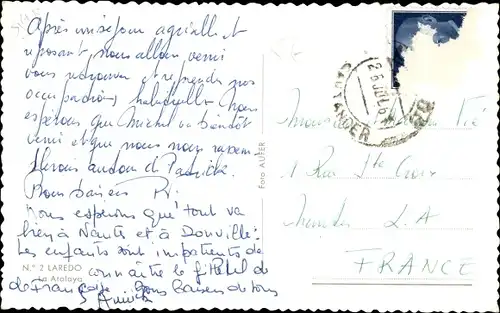 Après un séjour agréable et
reposant, nous allons venir
vous retrouver et reprendre nos
occupations habituelles. Nous
espérons que Michel va bientôt
venir et que nous nous
autour de Patrick.
Bons baisers
Nous espérons que tout va
bien à Nantes et à Donville.
Les enfants sont impatients de
connaître le
de Françoise. Bons baisers de tous
N.º 2 LAREDO
La Atalaya
Foto AUFER
SANTANDER
26 JUL 6
1 Rue Ste Croix
Nantes L. A
FRANCE